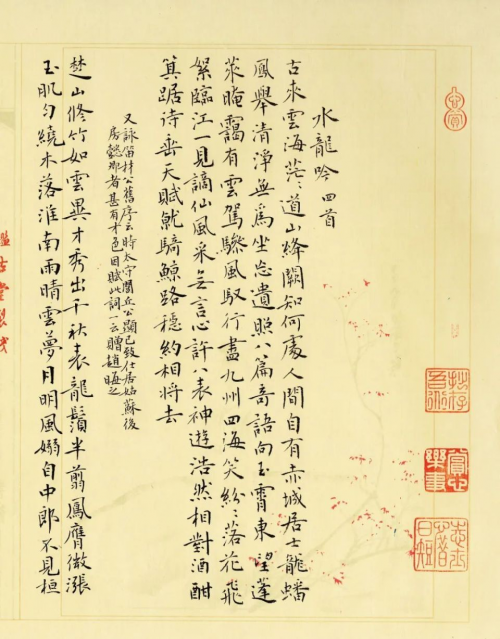 水龍吟 四首
古來雲海茫々道山絳闕知何處人間自有赤城居士龍蟠
鳳舉清淨無為坐忘遺照八篇奇語向玉霄東望蓬
萊晻靄有雲駕驂風馭行盡九州四海笑紛々落花飛
絮臨江一見謫仙風采無言心許八表神遊浩然相對酒酣
箕踞待垂天賦就騎鯨路穩約相將去
又詠笛材公舊序云時太守閭丘公顯已致仕居姑蘇後
房懿卿者甚有才色因賦此詞一云贈趙晦之
楚山修竹如雲異才秀出千秋表龍鬚半翦鳳膺微漲
玉肌勻繞木落淮南雨晴雲夢月明風嫋自中郎不見桓
賞心樂事
鑑古堂製